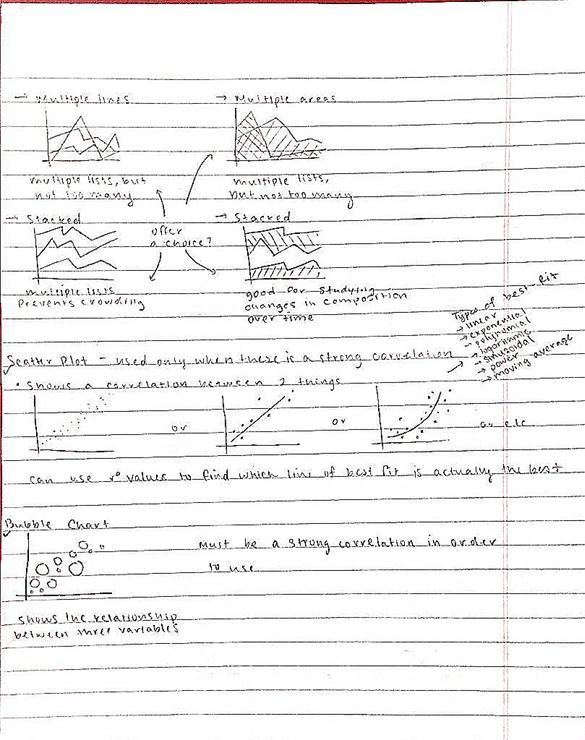 → Multiple lines
→ Multiple areas
multiple lists, but
not too many
multiple lists,
but not too many
→ Stacked
offer
a choice?
→ Stacked
multiple lists
Prevents crowding
good for studying
changes in composition
over time
Types of best-fit
→ linear
→ exponential
→ polynomial
→ logarithmic
→ sinusoidal
→ power
→ moving average
Scatter Plot - used only when there is a strong correlation →
• shows a correlation between 2 things
or
or
or etc.
can use r² values to find which line of best fit is actually the best
Bubble Chart
Must be a strong correlation in order
to use
shows the relationship
between three variables